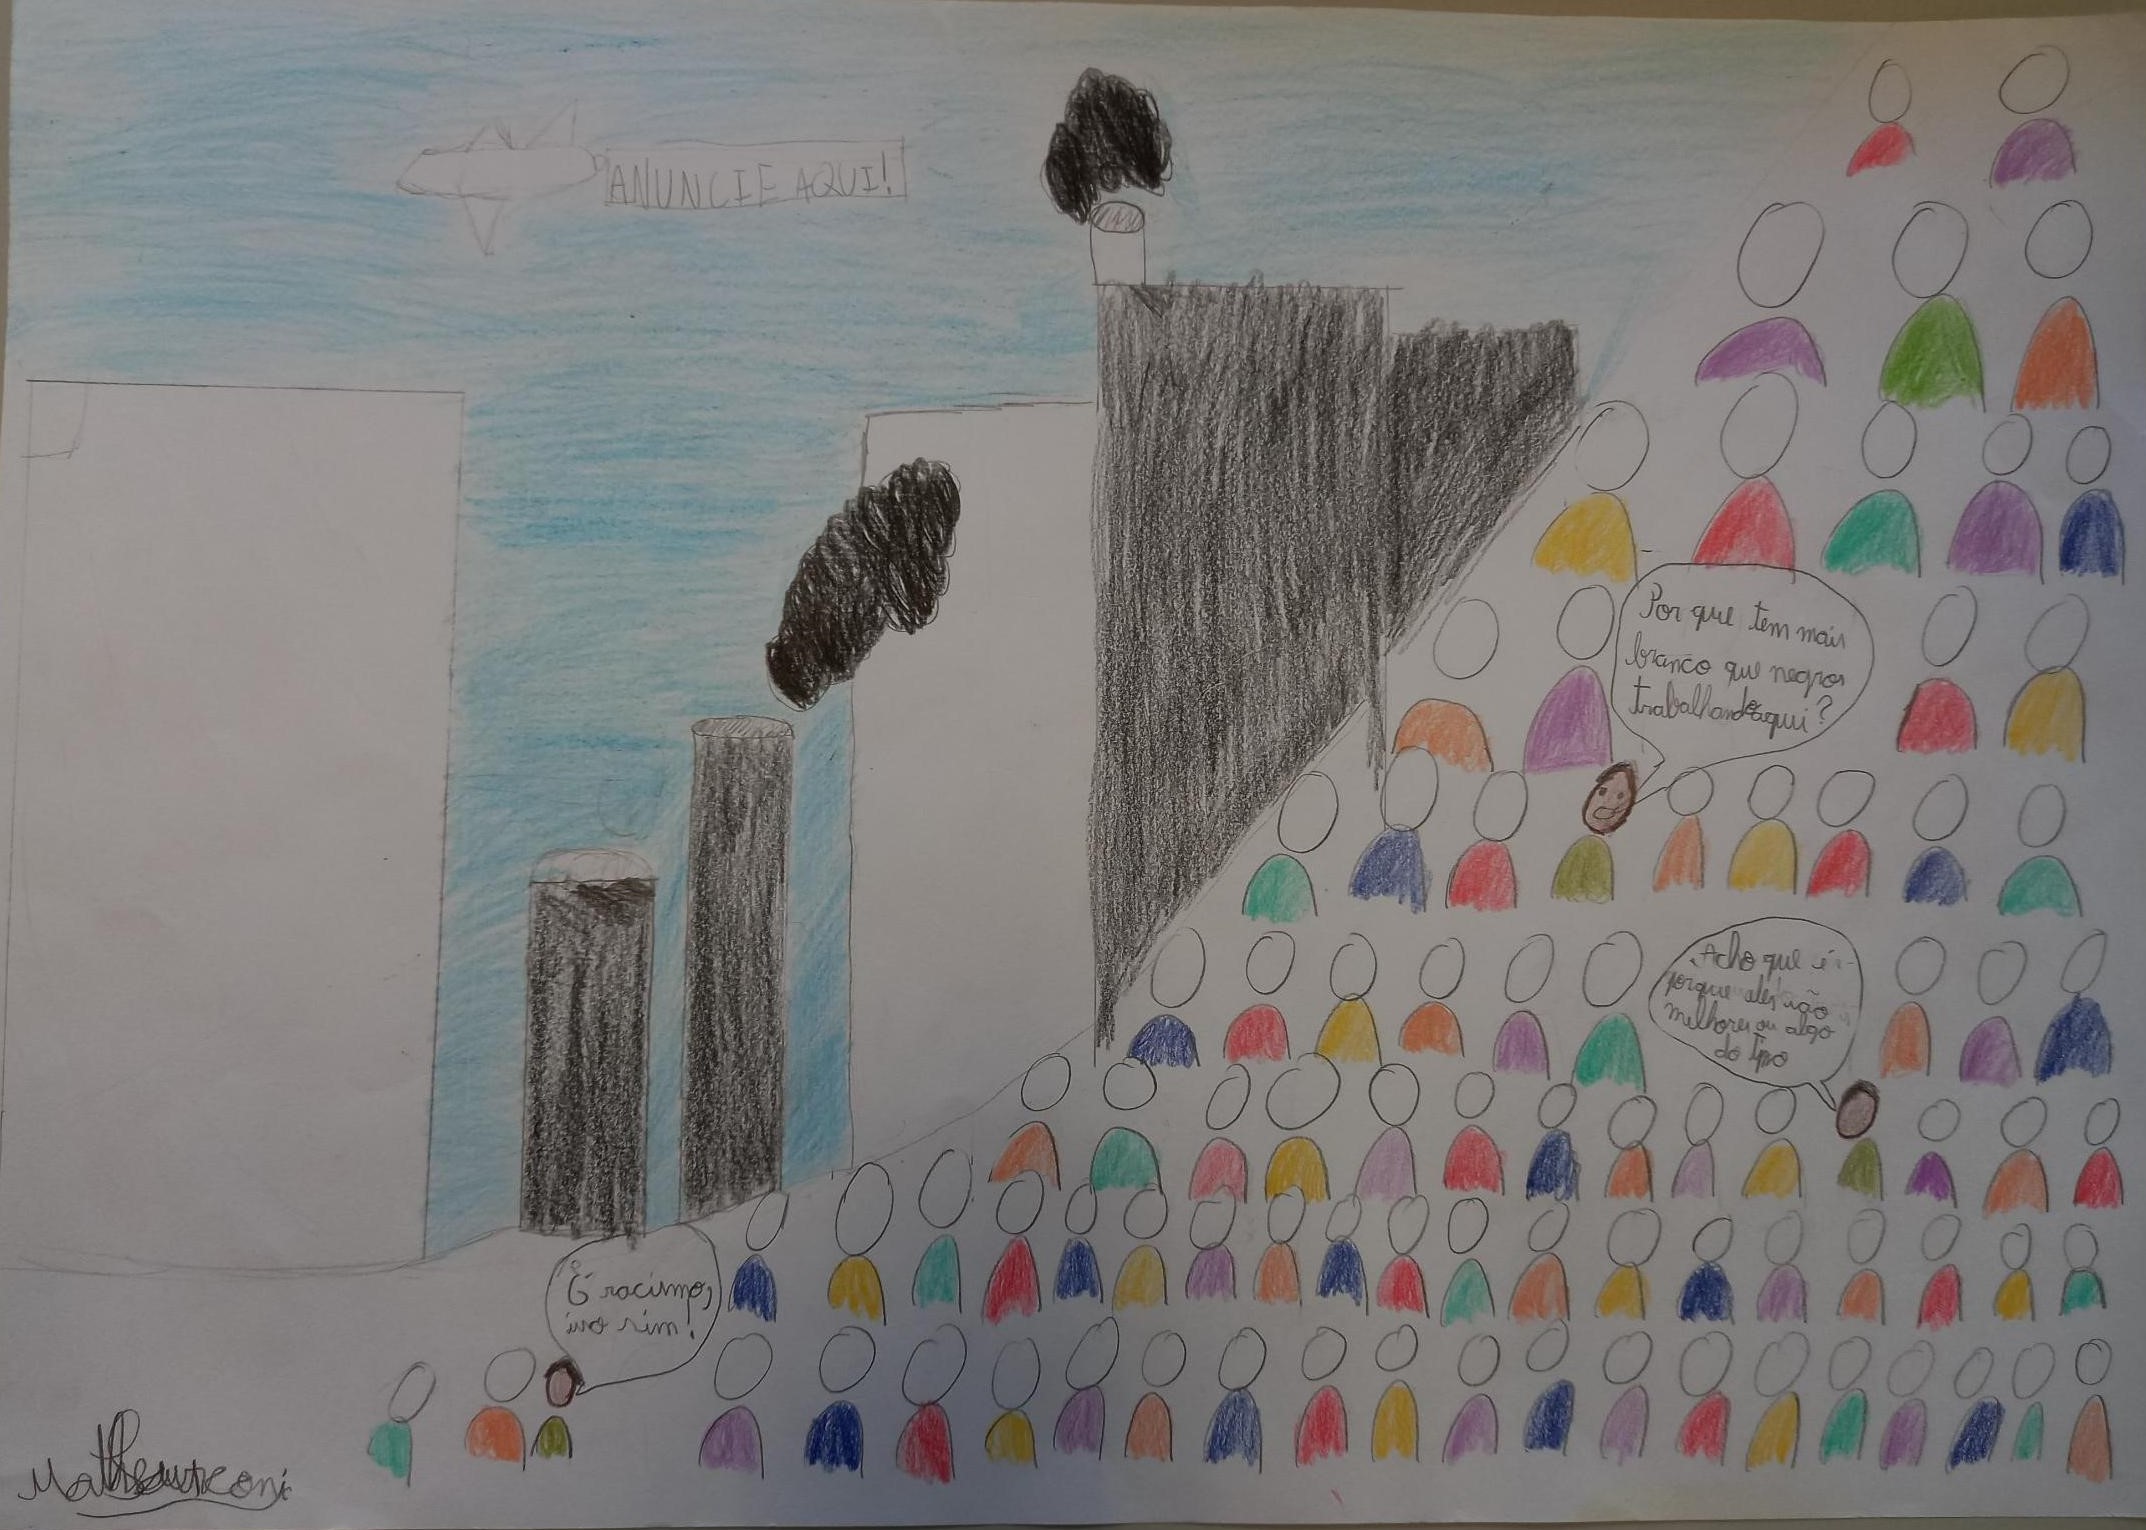 ANUNCIE AQUI!
Por que tem mais
branco que negros
trabalhando aqui?
Acho que é
porque eles são
melhores ou algo
do tipo
É racismo,
isso sim!